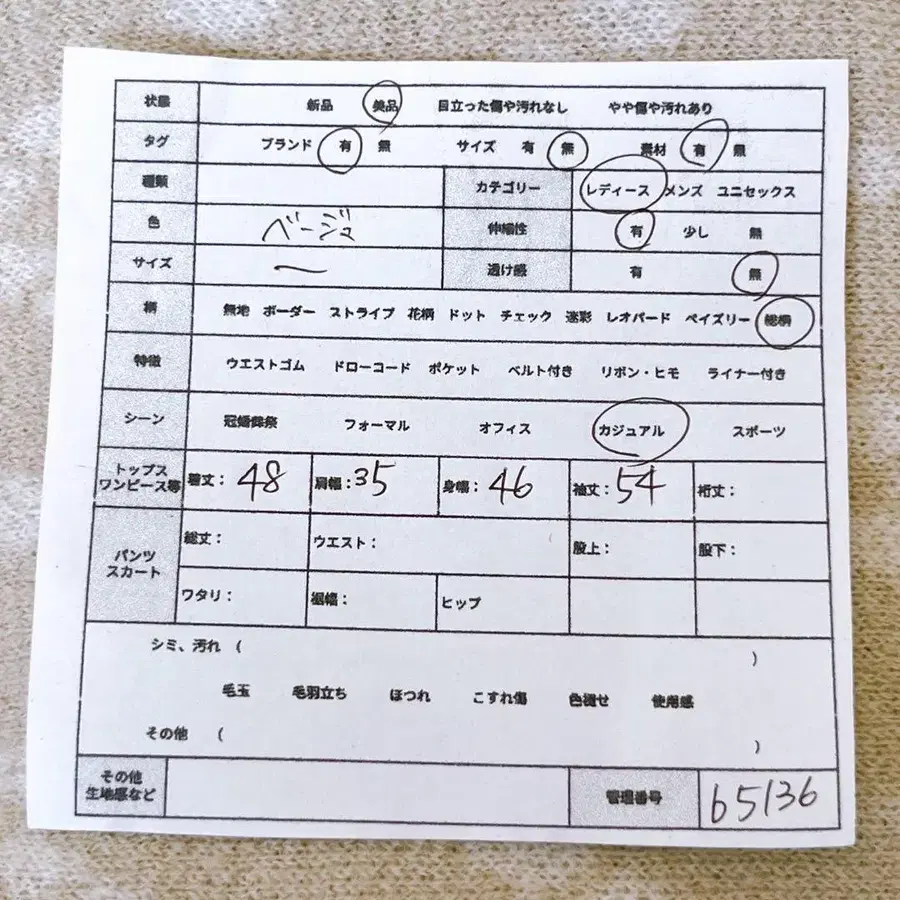 状態 新品 美品 目立った傷や汚れなし やや傷や汚れあり
タグ ブランド 有 無 サイズ 有 無 素材 有 無
種類 カテゴリー レディース メンズ ユニセックス
色 ベージュ 伸縮性 有 少し 無
サイズ ー 透け感 有 無
柄 無地 ボーダー ストライプ 花柄 ドット チェック 迷彩 レオパード ペイズリー 総柄
特徴 ウエストゴム ドローコード ポケット ベルト付き リボン・ヒモ ライナー付き
シーン 冠婚葬祭 フォーマル オフィス カジュアル スポーツ
トップス
ワンピース等 着丈：48 肩幅：35 身幅：46 袖丈：54 裄丈：
パンツ
スカート
総丈： ウエスト： 股上： 股下：
ワタリ： 裾幅： ヒップ
シミ、汚れ （ ）
毛玉 毛羽立ち ほつれ こすれ傷 色褪せ 使用感
その他 （ ）
その他
生地感など 管理番号 65136